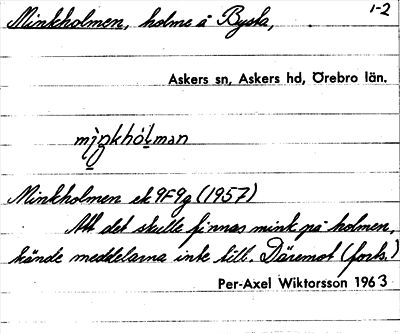 Minkholmen, holme å Byska, . 1-2
Askers sn, Askers hd, Örebro län.
mi̠ŋkhól̠man
Minkholmen ek 9F9g (1957)
Att det skulle finnas mink på holmen,
kände meddelarna inte till. Däremot (forts.)
Per-Axel Wiktorsson 1963